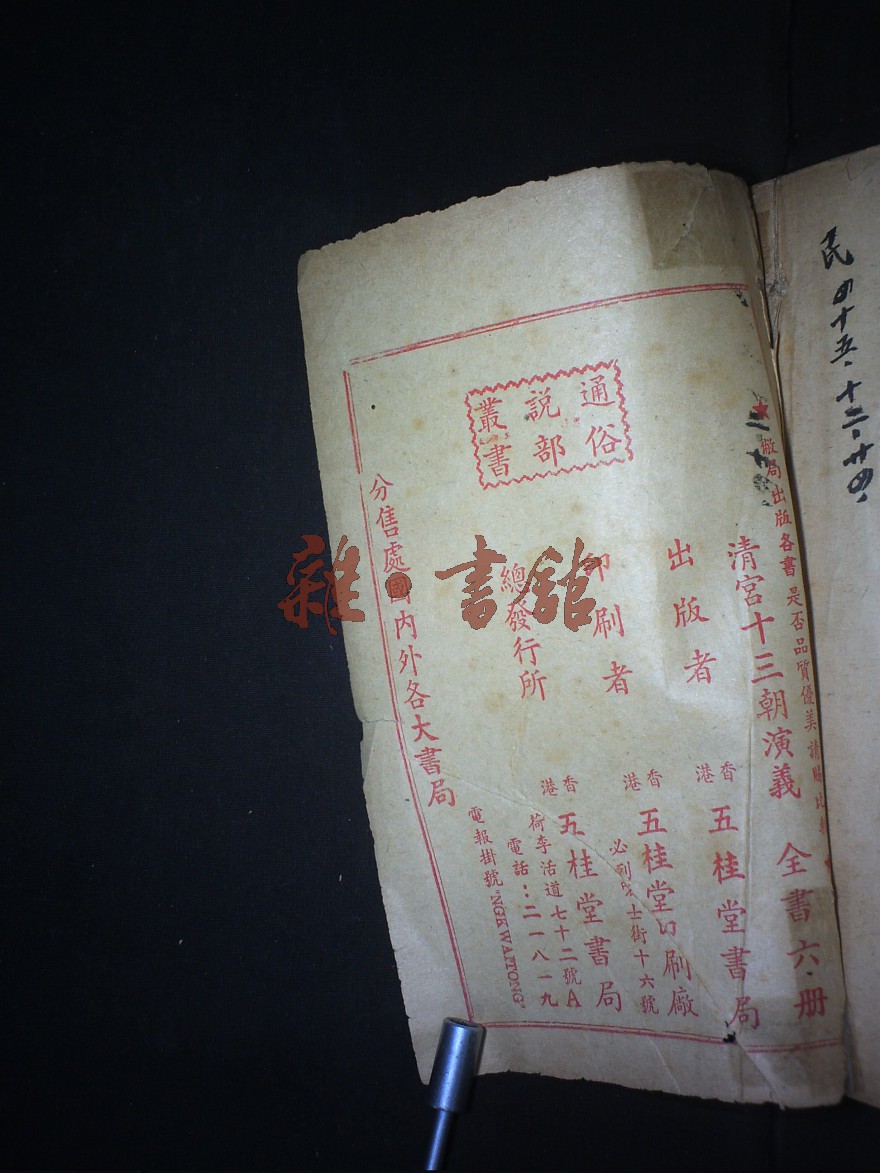 民四十五、十二、廿四、
敝局出版各書 是否品質優美 請賜比較
清宮十三朝演義 全書六册
出版者 香港 五桂堂書局
印刷者 香港 五桂堂印刷廠
必列啫士街十六號
總發行所 香港 五桂堂書局
荷李活道七十二號A
電話：二一八一九
電報掛號"NGKWAITONG"
通俗
說部
叢書
分售處 國內外各大書局
雜·書館